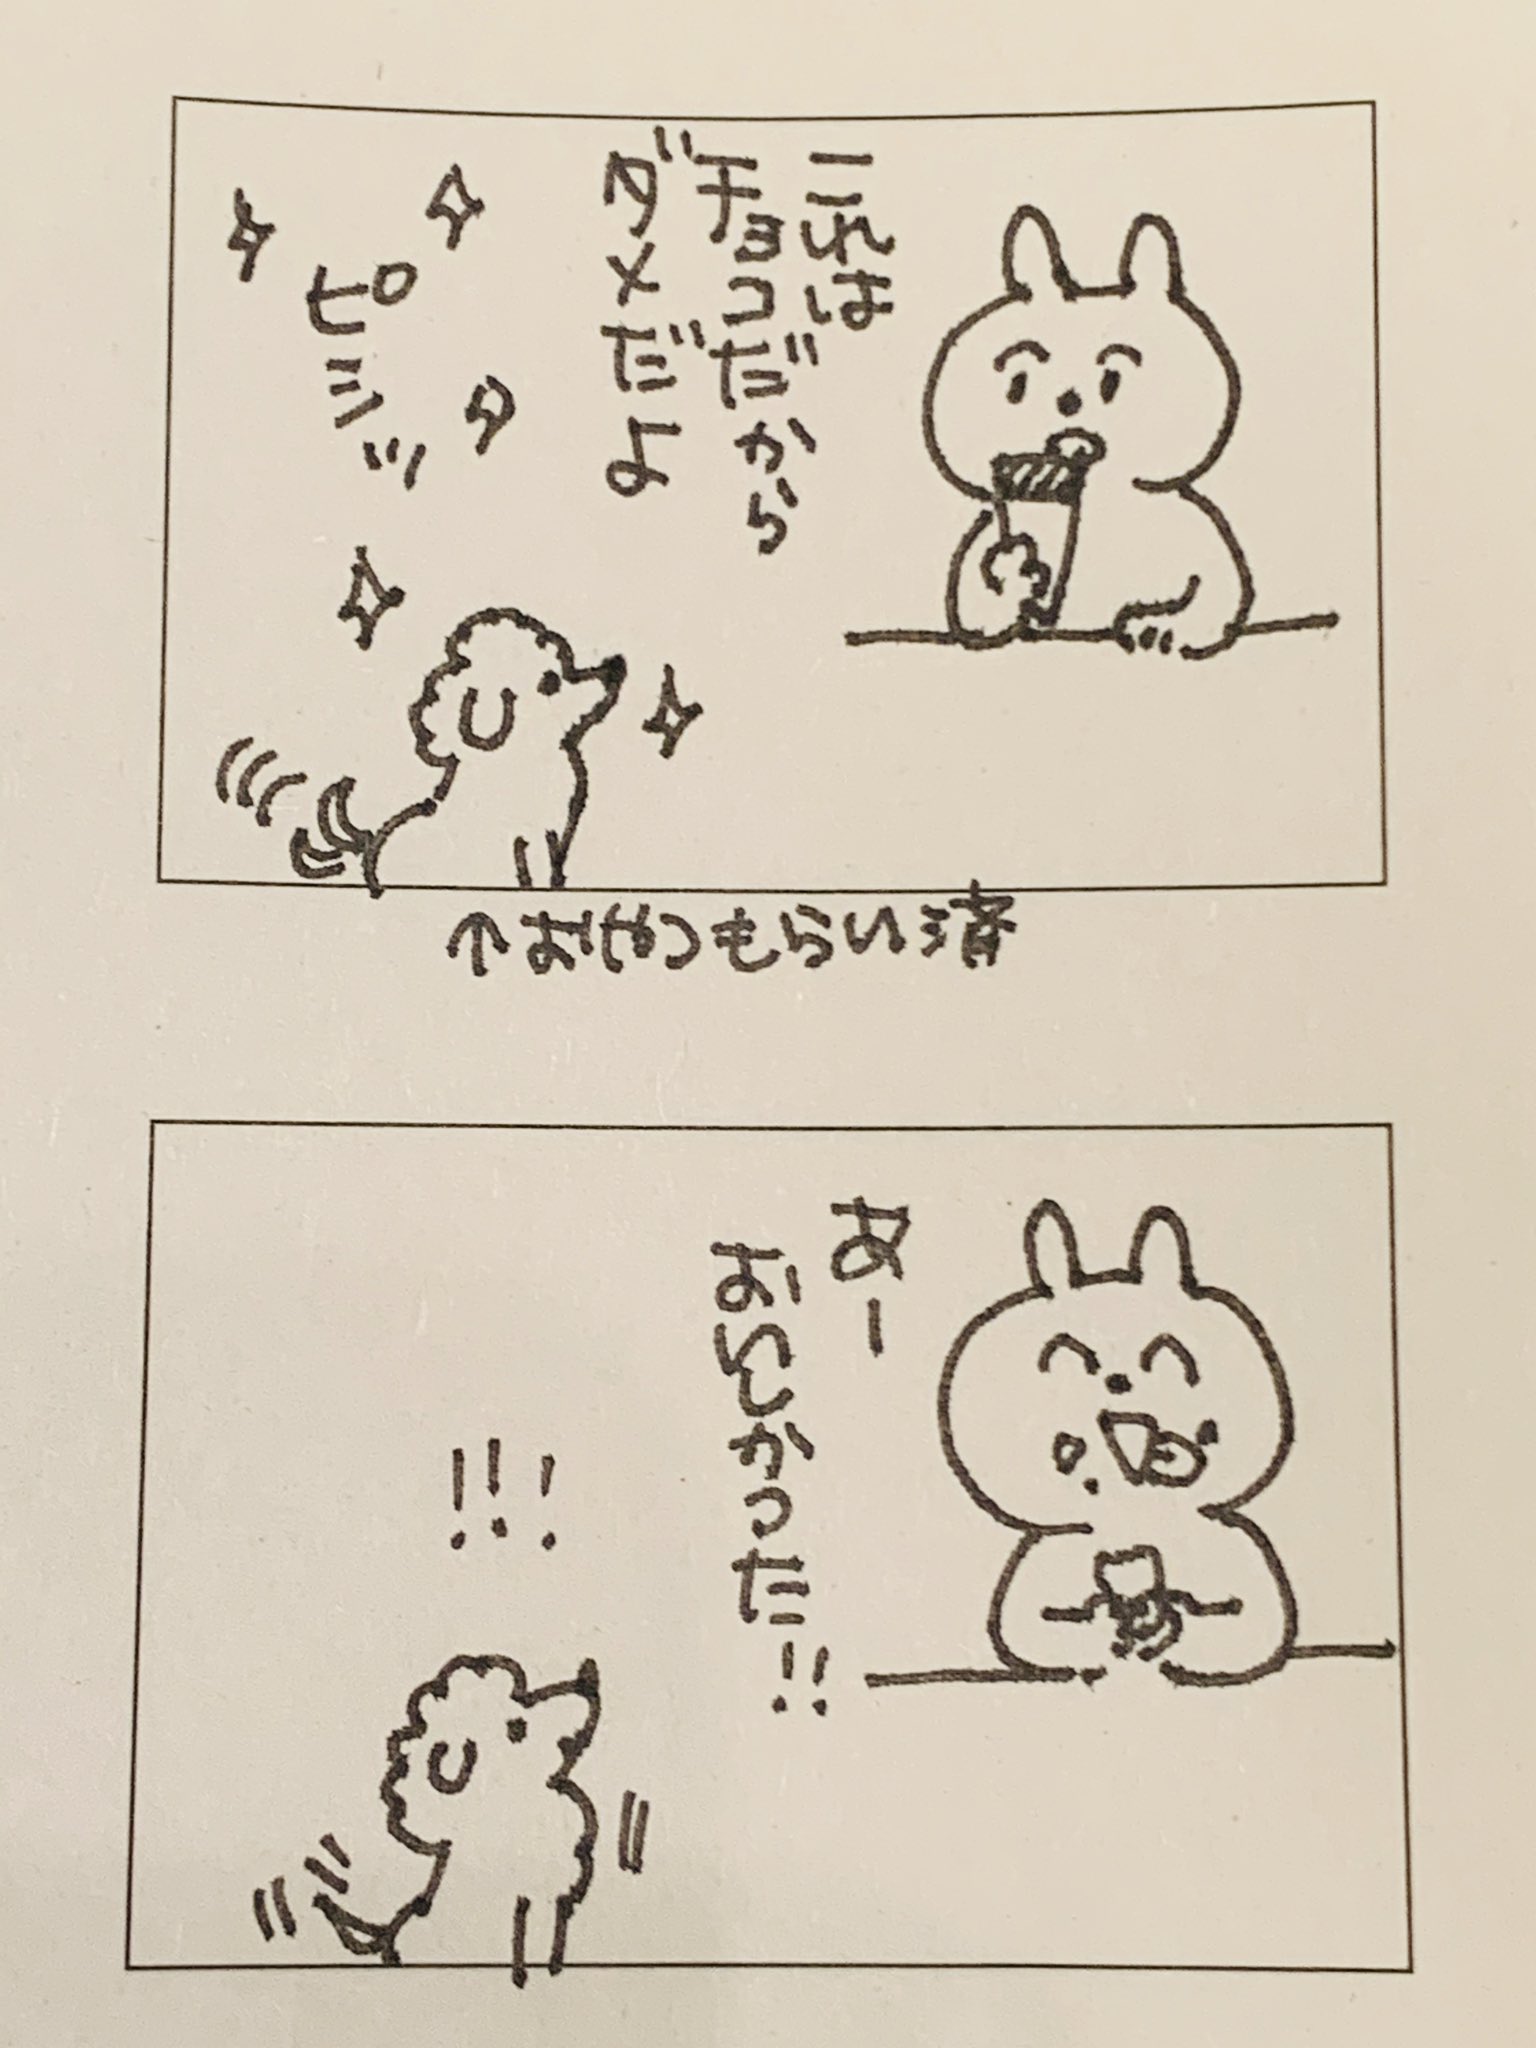 これは
チョコだから
ダメだよ
ピシッ
↑おやつもらい済
あー
おいしかった!!
!!!